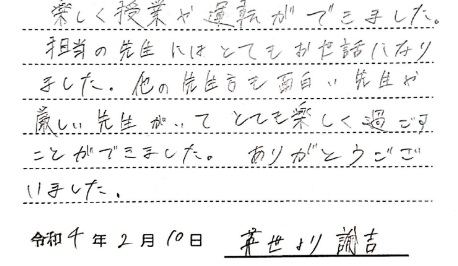 楽しく授業や運転ができました。
担当の先生にはとてもお世話になり
ました。他の先生方も面白い先生や
厳しい先生がいてとても楽しく過ごす
ことができました。ありがとうござ
いました。
令和4年2月10日 世より諭吉